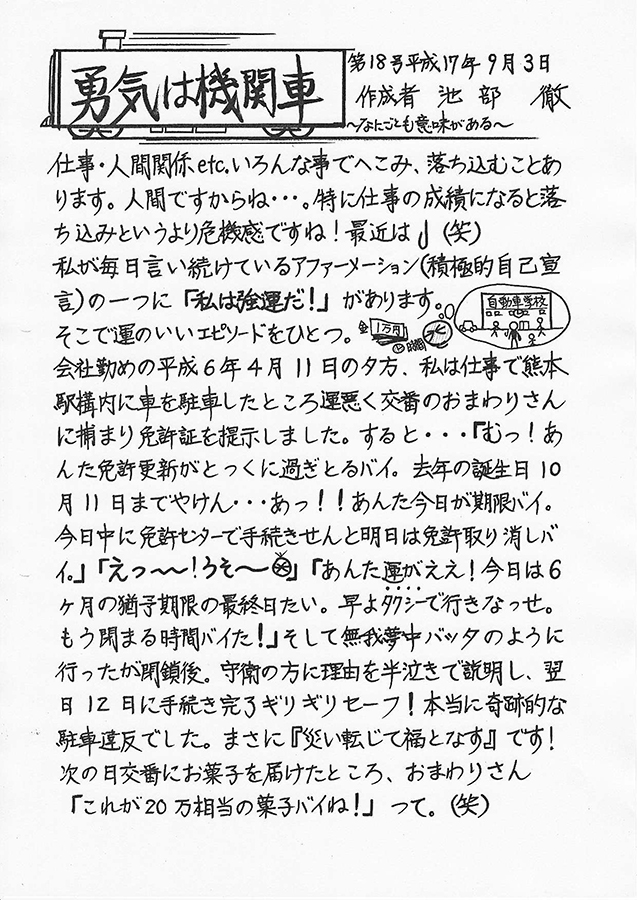 勇気は機関車
第18号平成17年9月3日
作成者 池部 徹
～なにごとも意味がある～
仕事・人間関係etc.いろんな事でへこみ、落ち込むことあ
ります。人間ですからね・・・。特に仕事の成績になると落
ち込みというより危機感ですね！最近は』(笑)
私が毎日言い続けているアファーメーション(積極的自己宣
言)の一つに「私は強運だ！」があります。
自動車学校
そこで運のいいエピソードをひとつ。
1万円
時間
会社勤めの平成6年4月11日の夕方、私は仕事で熊本
駅構内に車を駐車したところ運悪く交番のおまわりさん
に捕まり免許証を提示しました。すると・・・『むっ！あ
んた免許更新がとっくに過ぎとるバイ。去年の誕生日10
月11日までやけん・・・あっ！！あんた今日が期限バイ。
今日中に免許センターで手続きせんと明日は免許取り消しバ
イ。」「えっ～～！うそ～」「あんた運がええ！今日は6
ヶ月の猶予期限の最終日たい。早よタクシーで行きなっせ。
もう閉まる時間バイた！」そして無我夢中バッタのように
行ったが閉鎖後。守衛の方に理由を半泣きで説明し、翌
日12日に手続き完了ギリギリセーフ！本当に奇跡的な
駐車違反でした。まさに『災い転じて福となす』です！
次の日交番にお菓子を届けたところ、おまわりさん
「これが20万相当の菓子バイね！」って。(笑)